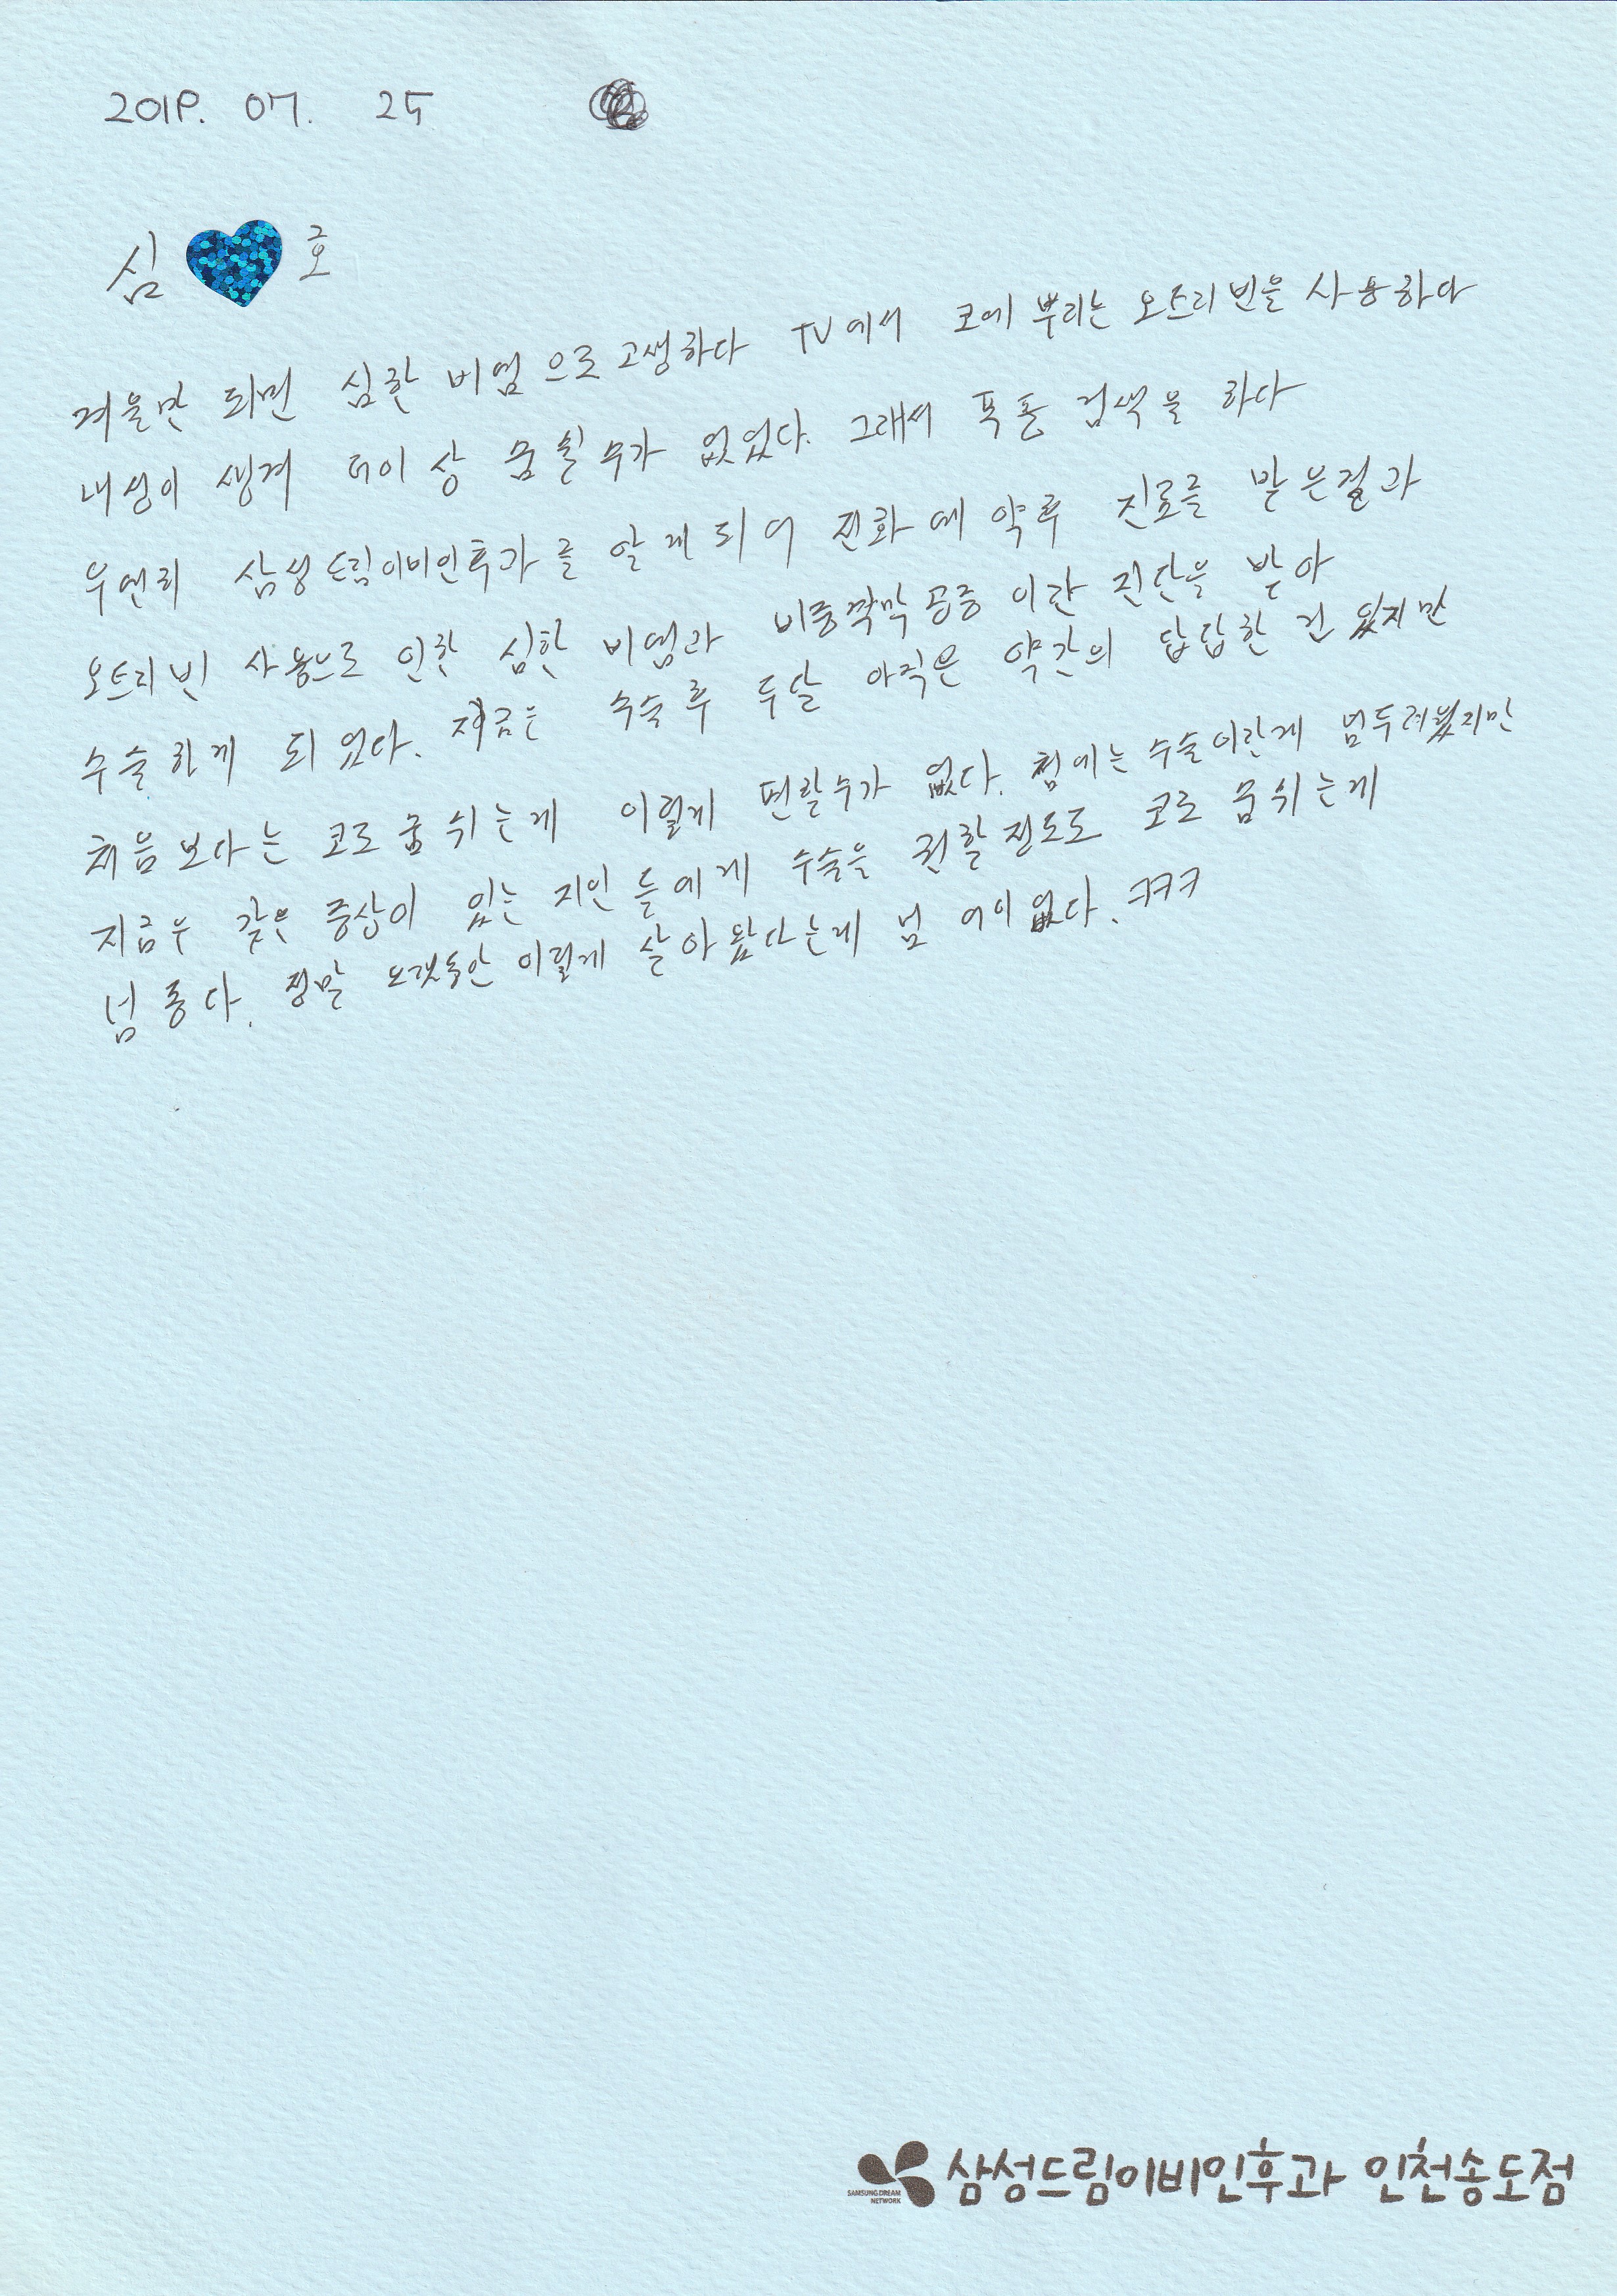 2019. 07. 25
심 호
겨울만 되면 심한 비염으로 고생하다 TV에서 코에 뿌리는 오트리빈을 사용하다
내성이 생겨 더이상 숨쉴수가 없었다. 그래서 폭폰 검색을 하다
우연히 삼성드림이비인후과를 알게되어 전화예약후 진료를 받은결과
오트리빈 사용으로 인한 심한 비염과 비중격만곡증이란 진단을 받아
수술하게 되었다. 지금은 수술후 두달 아직은 약간의 답답한 건 있지만
처음보다는 코로 숨쉬는게 이렇게 편할수가 없다. 첨에는 수술이란게 넘두려웠지만
지금은 같은 증상이 있는 지인들에게 수술을 권할정도로 코로 숨쉬는게
넘 좋다. 정말 오랫동안 이렇게 살아왔다는게 넘 어이없다. ㅋㅋㅋ
SAMSUNG DREAM
NETWORK
삼성드림이비인후과 인천송도점